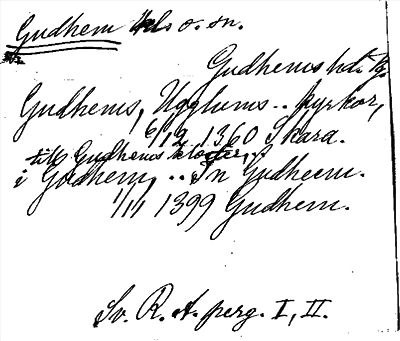 Gudhem kls o. sn.
Gudhems hd. Vg.
Gudhems, Ugglums .. kyrkor,
6/12 1360 Skara.
till Gudhems kloster,
i Godhem, .. In Gudheem.
1/11 1399 Gudhem.
Sv. R. A. perg. I, II.